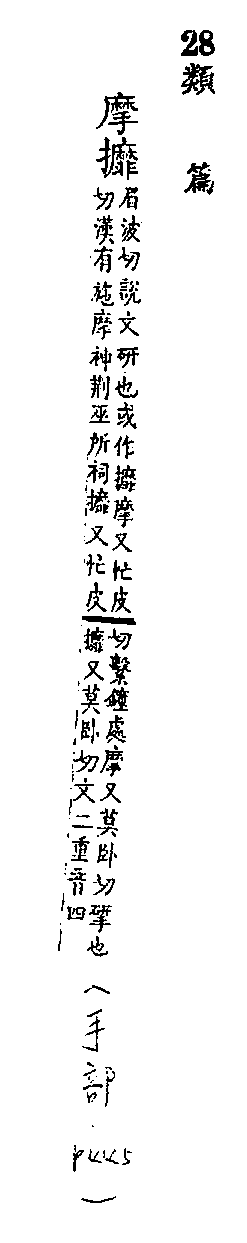 28類篇
摩攠
眉波切說文研也或作攠摩又忙皮
切漢有施摩神荆巫所祠攠又忙皮
切繫鐘處摩又莫卧切揅也
攠又莫卧切文二重音四
(手部．p445)